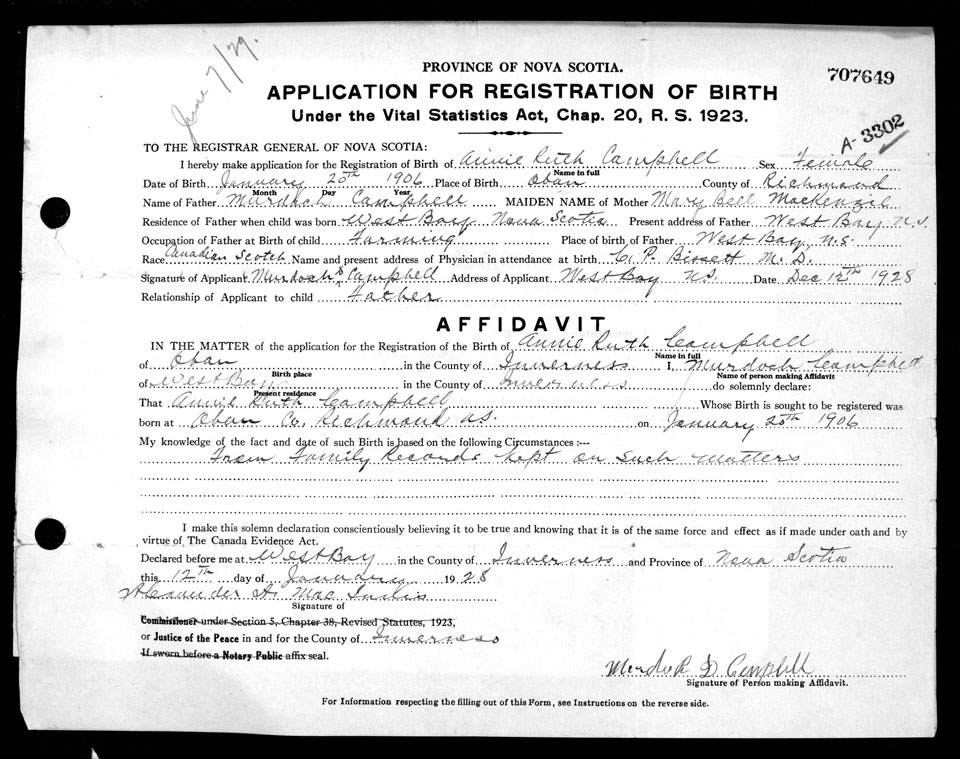 June 7/29.
PROVINCE OF NOVA SCOTIA.
707649
APPLICATION FOR REGISTRATION OF BIRTH
Under the Vital Statistics Act, Chap. 20, R. S. 1923.
A-3302
TO THE REGISTRAR GENERAL OF NOVA SCOTIA:
I hereby make application for the Registration of Birth of Annie Ruth Campbell Sex Female
Name in full
Date of Birth January 20th 1906 Place of Birth Oban County of Richmond
Month Day Year
Name of Father Murdoch Campbell MAIDEN NAME of Mother Mary Bell MacKenzie
Residence of Father when child was born West Bay Nova Scotia Present address of Father West Bay N.S.
Occupation of Father at Birth of child Farming Place of birth of Father West Bay, N.S.
Race Canadian Scotch Name and present address of Physician in attendance at birth C. P. Bissett M. D.
Signature of Applicant Murdoch D Campbell Address of Applicant West Bay NS. Date Dec 12th 1928
Relationship of Applicant to child Father
AFFIDAVIT
IN THE MATTER of the application for the Registration of the Birth of Annie Ruth Campbell
Name in full
of Oban in the County of Inverness I, Murdoch Campbell
Birth place Name of person making Affidavit
of West Bay in the County of Inverness do solemnly declare:
Present residence
That Annie Ruth Campbell Whose Birth is sought to be registered was
born at Oban Co. Richmond NS. on January 20th 1906
My knowledge of the fact and date of such Birth is based on the following Circumstances :---
From Family Records kept on such matters
I make this solemn declaration conscientiously believing it to be true and knowing that it is of the same force and effect as if made under oath and by
virtue of The Canada Evidence Act.
Declared before me at West Bay in the County of Inverness and Province of Nova Scotia
this 12th day of January 1928
Alexander A. Mac Innis
Signature of
Commissioner under Section 5, Chapter 38, Revised Statutes, 1923,
or Justice of the Peace in and for the County of Inverness
If sworn before a Notary Public affix seal.
Murdoch D Campbell
Signature of Person making Affidavit.
For Information respecting the filling out of this Form, see Instructions on the reverse side.